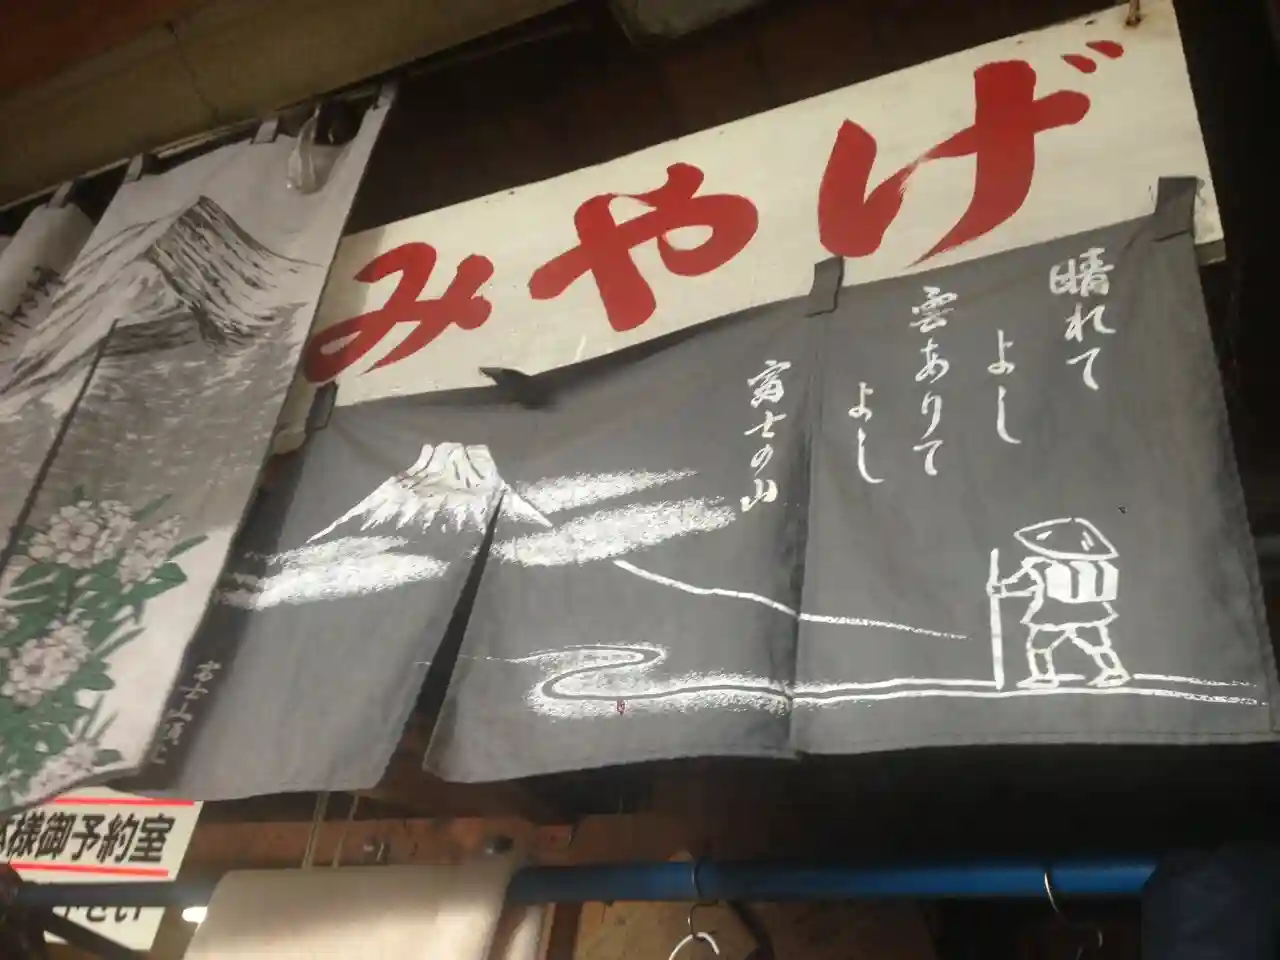 みやげ
晴れて
よし
雲ありて
よし
富士の山
富士山頂上
様御予約室
下さい